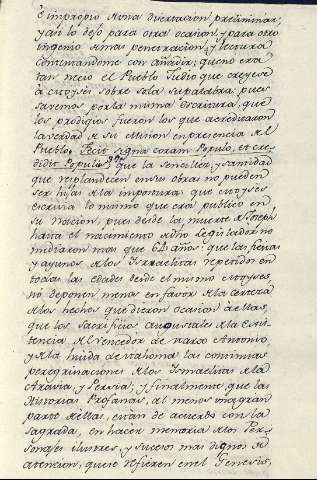 è impropio à una disertacion preliminar;
y asi lo dejo para otra ocasion, y para otro
ingenio de mas penetracion, y lectura
contentandome con añadir; que no era
tan necio el Pueblo Judio que creyese
à Moyses sobre sola su palabra: pues
savemos por la misma Escritura, que
los prodigios fueron los que acreditaron
la verdad de su Mision en presencia del
Pueblo. Fecit signa coram Populo, et cre-
didit Populus. que la sencillez, y santidad
que resplandecen en sus obras no pueden
ser hijas de la impostura, que Moyses
escrivia lo mismo que era publico en
su Nacion, pues desde la muerte de Joseph
hasta el nacimiento de dho Legislador no
mediaron mas que 64 años: que las fiestas
y ayunos de los Israelitas repetidos en
todas las edades desde el mismo Moyses,
no deponen menos en favor de la certeza
de los hechos que dieron ocasion à ellas,
que los Sacrificios augustales de la exis-
tencia del Vencedor de Marco Antonio,
y de la huida de Mahoma las continuas
peregrinaciones de los Ismaelitas de la
Aravia, y Persia; y finalmente que las
Historias Profanas, al menos una gran
parte de ellas, estan de acuerdo con la
sagrada, en hacer memoria de los Per-
sonajes ilustres, y sucesos mas dignos de
atencion, que se refieren en el Genesis,